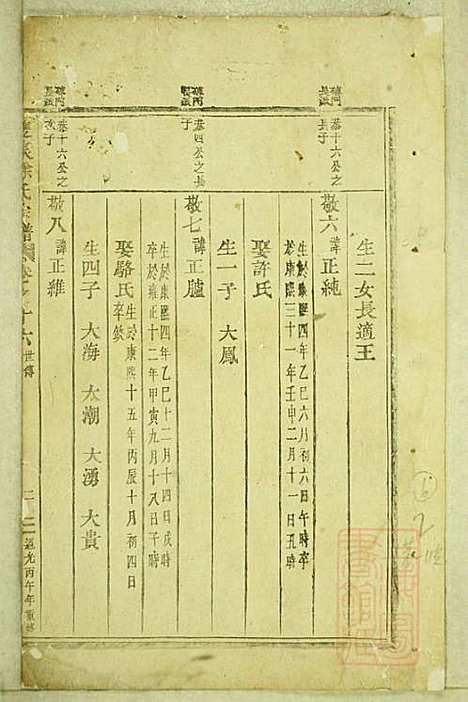 生二女長適王
恭十六公之長子
敬六 諱正純
生於康熙四年乙巳六月初六日午時卒
於康熙三十一年壬申二月十一日丑時
娶許氏
生一子 大鳳
恭四公之長子
敬七 諱正臚
生於康熙四年乙巳十二月十四日戌時
卒於雍正十二年甲寅九月十八日子時
娶駱氏 生於康熙十五年丙辰十月初四日
卒欽
生四子 大海 大潮 大湧 大貴
恭十六公之次子
敬八 諱正維
徐氏宗譜 卷之十六 世傳
道光丙午年重修